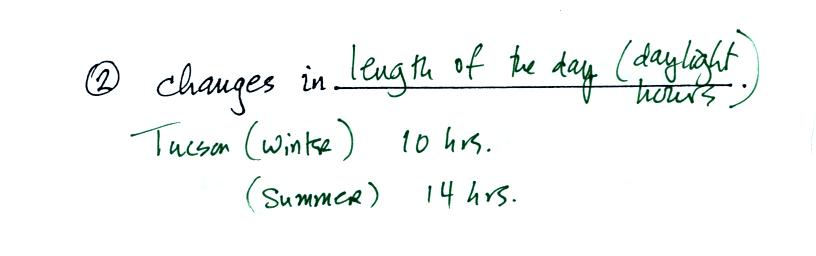 ② changes in length of the day (daylight hours).
Tucson (winter) 10 hrs.
(Summer) 14 hrs.